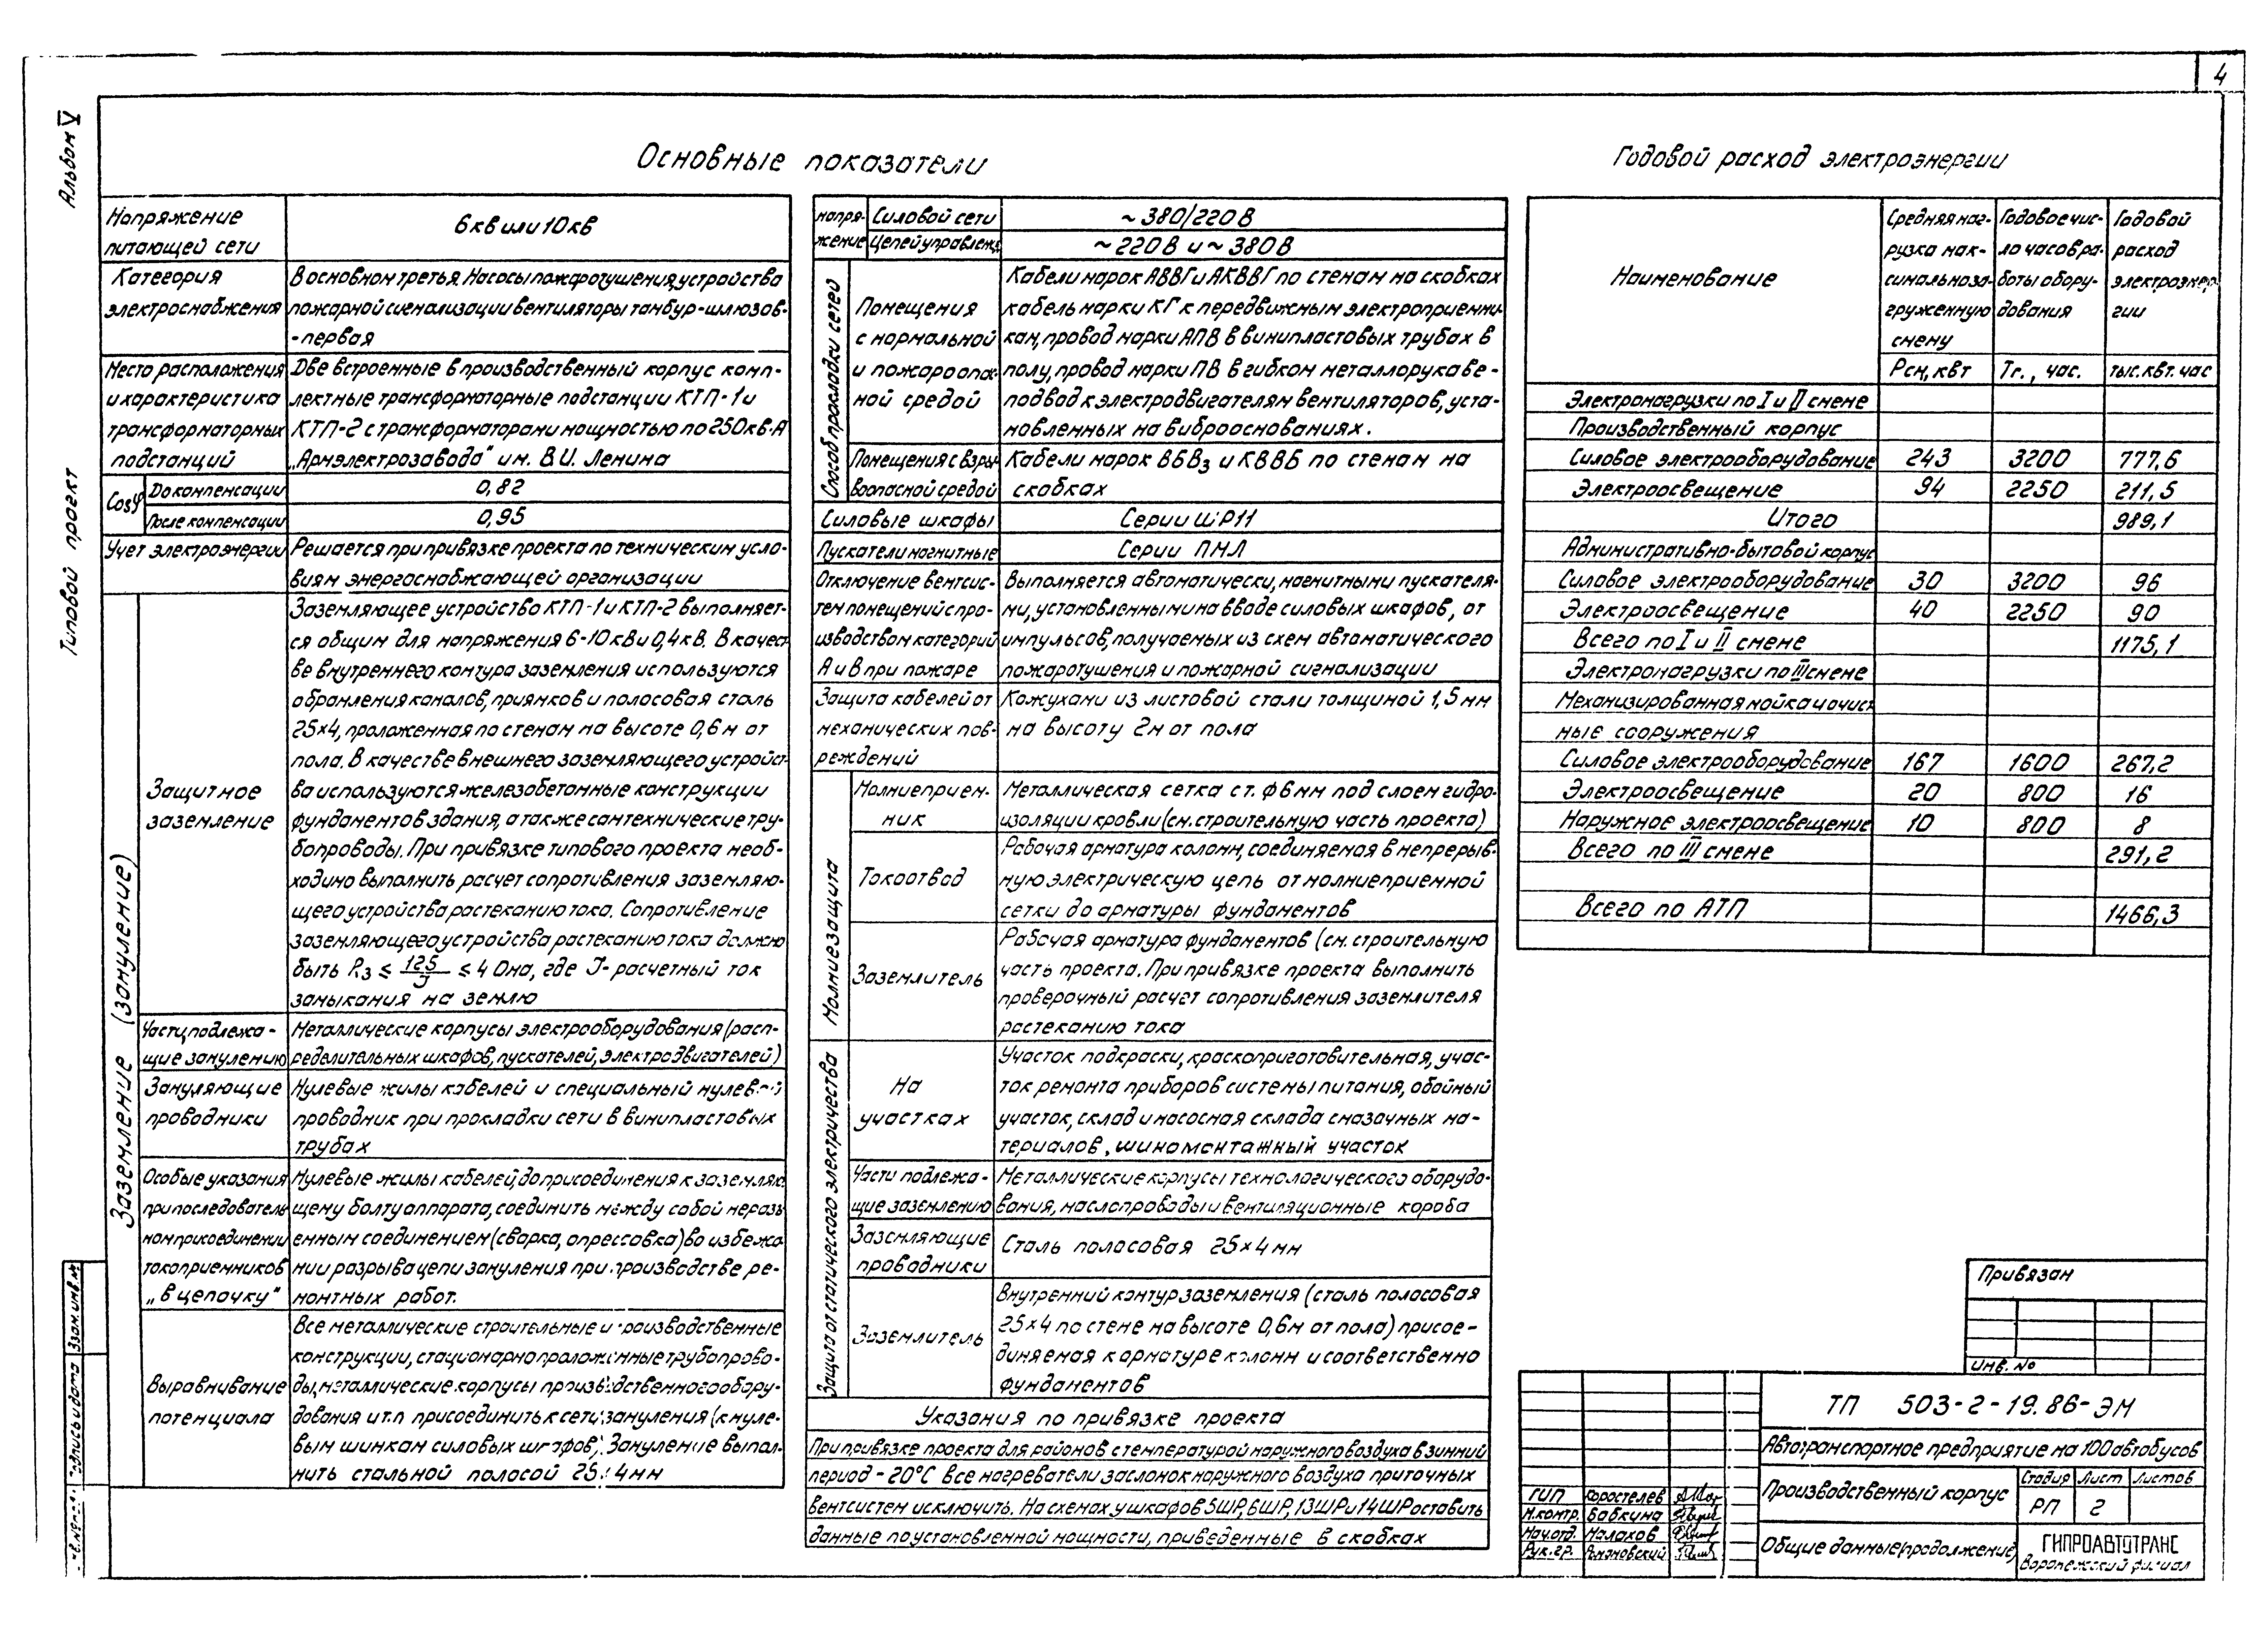 4
Альбом V
Типовой проект
Основные показатели
Напряжение
питающей сети
6кв или 10кв
Категория
электроснабжения
В основном третья. Насосы пожаротушения, устройства
пожарной сигнализации вентиляторы тамбур-шлюзов-
-первая
Место расположения
и характеристика
трансформаторных
подстанций
Две встроенные в производственный корпус комп-
лектные трансформаторные подстанции КТП-1 и
КТП-2 с трансформаторами мощностью по 250кв.А
„Армэлектрозавода" им. В.И. Ленина
Cosφ
До компенсации
0,82
После компенсации
0,95
Учет электроэнергии
Решается при привязке проекта по техническим усло-
виям энергоснабжающей организации
Заземление (зануление)
Защитное
заземление
Заземляющее устройство КТП-1 и КТП-2 выполняет-
ся общим для напряжения 6-10кв и 0,4кв. В качест-
ве внутреннего контура заземления используются
обрамления каналов, приямков и полосовая сталь
25×4, проложенная по стенам на высоте 0,6м от
пола. В качестве внешнего заземляющего устройст-
ва используются железобетонные конструкции
фундаментов здания, а также сантехнические тру-
бопроводы. При привязке типового проекта необ-
ходимо выполнить расчет сопротивления заземляю-
щего устройства растеканию тока. Сопротивление
заземляющего устройства растеканию тока должно
быть Rз ≤ 125/J ≤ 4 Ома, где J-расчетный ток
замыкания на землю
Части, подлежа-
щие занулению
Металлические корпусы электрооборудования (расп-
ределительных шкафов, пускателей, электродвигателей)
Зануляющие
проводники
Нулевые жилы кабелей и специальный нулевой
проводник при прокладки сети в винипластовых
трубах
Особые указания
при последователь
ном присоединении
токоприемников
„в цепочку"
Нулевые жилы кабелей, до присоединения к заземляю
щему болту аппарата, соединить между собой неразъ
емным соединением (сварка, опрессовка) во избежа
нии разрыва цепи зануления при производстве ре-
монтных работ.
Выравнивание
потенциала
Все металлические строительные и производственные
конструкции, стационарно проложенные трубопрово-
ды, металлические корпусы производственного обору-
дования и т.п присоединить к сети зануления (к нуле-
вым шинкам силовых шкафов). Зануление выпол-
нить стальной полосой 25×4мм
напря-
жение
Силовой сети
~380/220В
Цепей управлен.
~220В и ~380В
Способ прокладки сетей
Помещения
с нормальной
и пожароопас
ной средой
Кабели марок АВВГ и АКВВГ по стенам на скобках
кабель марки КГ к передвижным электроприемни-
кам, провод марки АПВ в винипластовых трубах в
полу, провод марки ПВ в гибком металлорукаве-
подвод к электродвигателям вентиляторов, уста-
новленных на виброоснованиях.
Помещения с взры
воопасной средой
Кабели марок ВБВз и КВВБ по стенам на
скобках
Силовые шкафы
Серии ШР11
Пускатели магнитные
Серии ПМЛ
Отключение вентсис-
тем помещений с про-
изводством категорий
А и В при пожаре
Выполняется автоматически, магнитными пускателя-
ми, установленными на вводе силовых шкафов, от
импульсов, получаемых из схем автоматического
пожаротушения и пожарной сигнализации
Защита кабелей от
механических пов-
реждений
Кожухами из листовой стали толщиной 1,5мм
на высоту 2м от пола
Молниезащита
Молниеприем-
ник
Металлическая сетка ст. ф6мм под слоем гидро-
изоляции кровли (см. строительную часть проекта)
Токоотвод
Рабочая арматура колонн, соединяемая в непрерыв-
ную электрическую цепь от молниеприемной
сетки до арматуры фундаментов
Заземлитель
Рабочая арматура фундаментов (см. строительную
часть проекта. При привязке проекта выполнить
проверочный расчет сопротивления заземлителя
растеканию тока
Защита от статического электричества
На
участках
Участок подкраски, краскоприготовительная, учас-
ток ремонта приборов системы питания, обойный
участок, склад и насосная склада смазочных ма-
териалов, шиномонтажный участок
Части подлежа-
щие заземлению
Металлические корпусы технологического оборудо-
вания, маслопроводы и вентиляционные короба
Заземляющие
проводники
Сталь полосовая 25×4мм
Заземлитель
Внутренний контур заземления (сталь полосовая
25×4 по стене на высоте 0,6м от пола) присое-
диняемая к арматуре колонн и соответственно
фундаментов
Указания по привязке проекта
При привязке проекта для районов с температурой наружного воздуха в зимний
период -20°С все нагреватели заслонок наружного воздуха приточных
вентсистем исключить. На схемах у шкафов 5ШР, 6ШР, 13ШР и 14ШР оставить
данные по установленной мощности, приведенные в скобках
Годовой расход электроэнергии
Наименование
Средняя наг-
рузка мак-
симальноза-
груженную
смену
Годовое чис-
ло часов ра-
боты обору-
дования
Годовой
расход
электроэнер
гии
Рсм, квт
Тг., час.
тыс.квт.час
Электронагрузки по I и II смене
Производственный корпус
Силовое электрооборудование 243 3200 777,6
Электроосвещение 94 2250 211,5
Итого 989,1
Административно-бытовой корпус
Силовое электрооборудование 30 3200 96
Электроосвещение 40 2250 90
Всего по I и II смене 1175,1
Электронагрузки по III смене
Механизированная мойка и очист
ные сооружения
Силовое электрооборудование 167 1600 267,2
Электроосвещение 20 800 16
Наружное электроосвещение 10 800 8
Всего по III смене 291,2
Всего по АТП 1466,3
Привязан
Инв. №
ТП 503-2-19.86-ЭМ
Автотранспортное предприятие на 100 автобусов
Производственный корпус
Стадия Лист Листов
РП 2
Общие данные (продолжение)
ГИПРОАВТОТРАНС
Воронежский филиал
ГИП Коростелев
Н.контр. Бабкина
Нач.отд. Малахов
Рук.гр. Романовский
Взам.инв.№
Подпись и дата